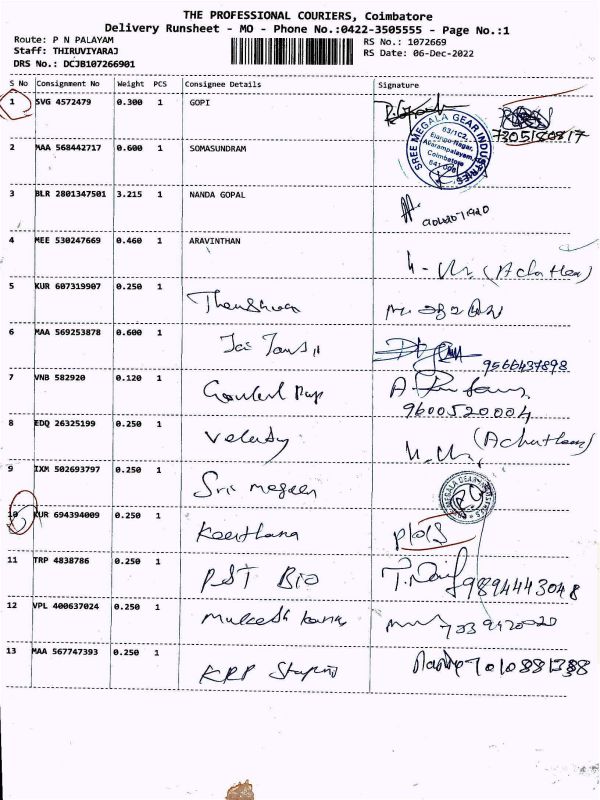 THE PROFESSIONAL COURIERS, Coimbatore
Delivery Runsheet - MO - Phone No.:0422-3505555 - Page No.:1
Route: P N PALAYAM
RS No.: 1072669
Staff: THIRUVIYARAJ
RS Date: 06-Dec-2022
DRS No.: DCJB107266901
S No Consignment No Weight PCS Consignee Details Signature
1 SVG 4572479 0.300 1 GOPI
7305180817
SREE MEGALA GEAR INDUSTRIES
63/1C2,
Elango Nagar,
Avarampalayam,
Coimbatore
641 006
2 MAA 568442717 0.600 1 SOMASUNDRAM
3 BLR 2801347501 3.215 1 NANDA GOPAL
4 MEE 530247669 0.460 1 ARAVINTHAN
5 KUR 607319907 0.250 1
6 MAA 569253878 0.600 1 Jai
9566437898
7 VNB 582920 0.120 1
9600520004
8 EDQ 26325199 0.250 1
9 IXM 502693797 0.250 1 Sri
MEGALA GEAR INDUSTRIES
10 KUR 694394009 0.250 1 Keerthana
11 TRP 4838786 0.250 1 PST Bio
9894443048
12 VPL 400637024 0.250 1 Mukesh kumar
13 MAA 567747393 0.250 1 KRP
7010881388